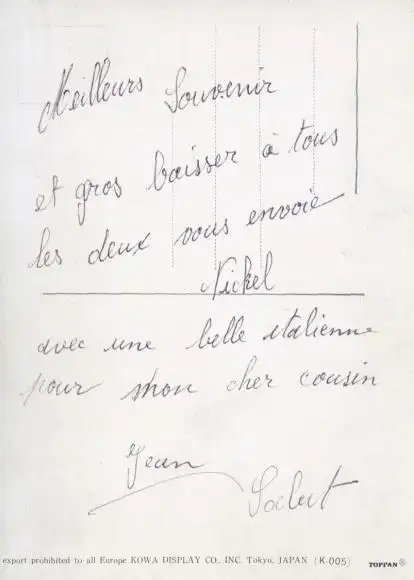 Meilleurs Souvenir
et gros baisser à tous
les deux vous envoie
Nickel
avec une belle italienne
pour mon cher cousin
Jean
export prohibited to all Europe KOWA DISPLAY CO., INC. Tokyo, JAPAN (K-005) TOPPAN®